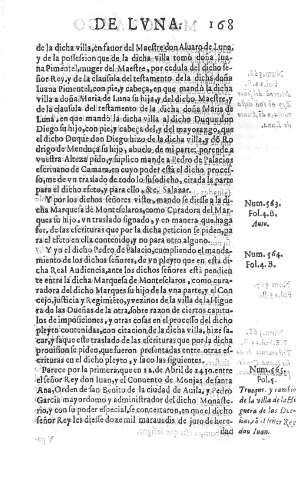 DE LVNA. 168
de la dicha villa, en fauor del Maestre don Aluaro de Luna,
y de la possession que de la dicha villa tomó doña Iua-
na Pimentel, muger del Maestre, por cedula del dicho se-
ñor Rey, y de la clausula del testamento de la dicha doña
Iuana Pimentel, con pie, y cabeça, en que mandó la dicha
villa a doña Maria de Luna su hija, y del dicho Maestre, y
de la clausula del testamento de la dicha doña Maria de
Luna, en que mandó la dicha villa al dicho Duque don
Diego su hijo, con pie, y cabeça del, y del mayorazgo, que
el dicho Duque don Diego hizo de la dicha villa, y dó Ro
drigo de Mendoça su hijo, abuelo, de mi parte: por ende a
vuestra Alteza pido, y suplico mande a Pedro de Palacios
escriuano de Camara, en cuyo poder está el dicho proces-
so, me de vn traslado de todo lo susodicho, citada la parte
para el dicho efeto, y para ello, &c. Salazar.
Y por los dichos señores visto, mandó se diesse a la di-
cha Marquesa de Montesclaros, como Curadora del Mar-
ques su hijo, vn traslado signado, y en manera que haga
fee, de las escrituras que por la dicha peticion se piden, pa
ra el efeto en ella contenido, y no para otro alguno.
Num. 563.
Fol. 4. B.
Auto.
Y yo el dicho Pedro de Palacio, cumpliendo el manda-
miento de los dichos señores, de vn pleyto que en esta di-
cha Real Audiencia, ante los dichos señores está pendien
te entre la dicha Marquesa de Montesclaros, como cura-
dora del dicho Marques su hijo de la vna parte, y el Con
cejo, justicia y Regimiéto, y vezinos de la villa de la Higue
ra de las Dueñas de la otra, sobre razon de ciertos capitu-
los de imposiciones, y otras cosas en el processo del dicho
pleyto contenidas, con citacion de la dicha villa, hize sa-
car, y saque este traslado de las escrituras que por la dicha
prouision se piden, que fueron presentadas entre otras es-
crituras en el dicho pleyto, y saco las siguientes.
Num. 564.
Fol. 4. B.
Parece por la primera, que en 12. de Abril de 1430. entre
el señor Rey don Iuan, y el Conuento de Monjas de santa
Ana, Orden de san Benito de la ciudad de Auila, y Pedro
Garcia mayordomo y administrador del dicho Monaste-
rio, y con su poder especial, se concertaron, en que el dicho
señor Rey les diesse doze mil marauedis de juro de here-
dad
Num. 565.
Fol. 5.
Trueque, y cambio
de la villa de la Hi
guera de las Due-
ñas, cō el señor Rey
don Iuan.